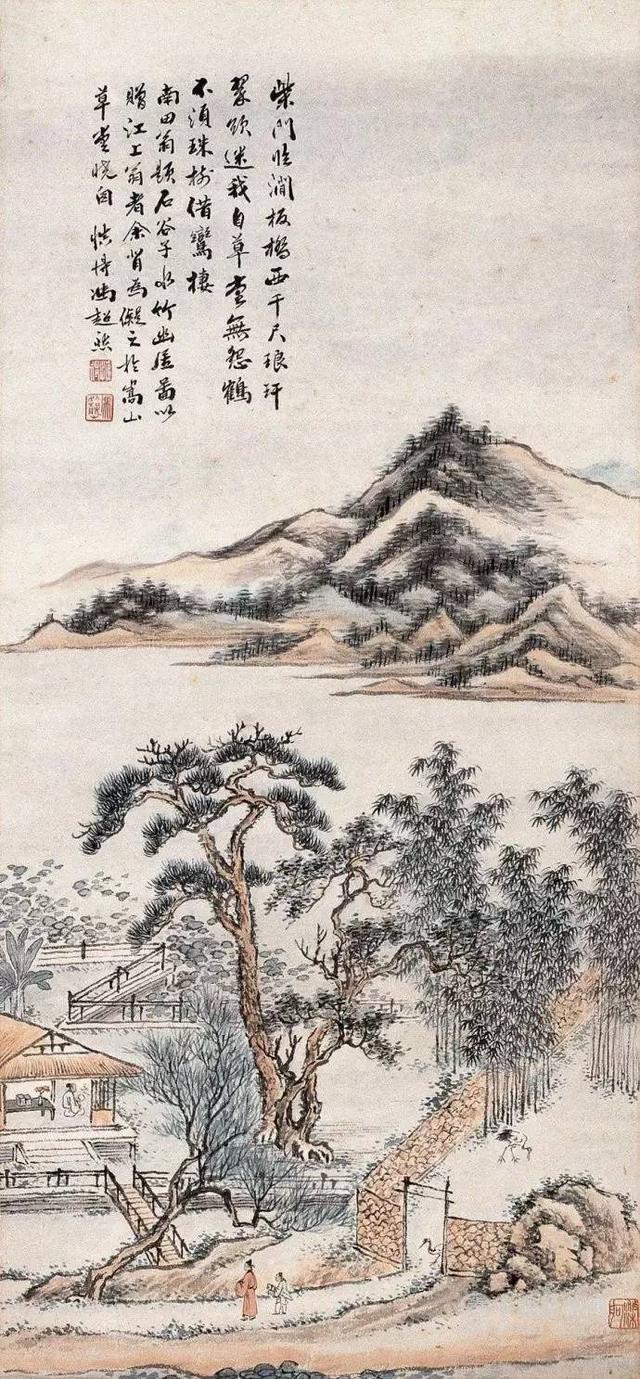 柴門臨澗板橋西千尺琅玕
翠欲迷我自草堂無怨鶴
不須珠樹借鸞棲
南田翁題石谷子水竹幽居圖以
贈江上翁者余背為儗之於嵩山
草堂曉 慎得馮超然